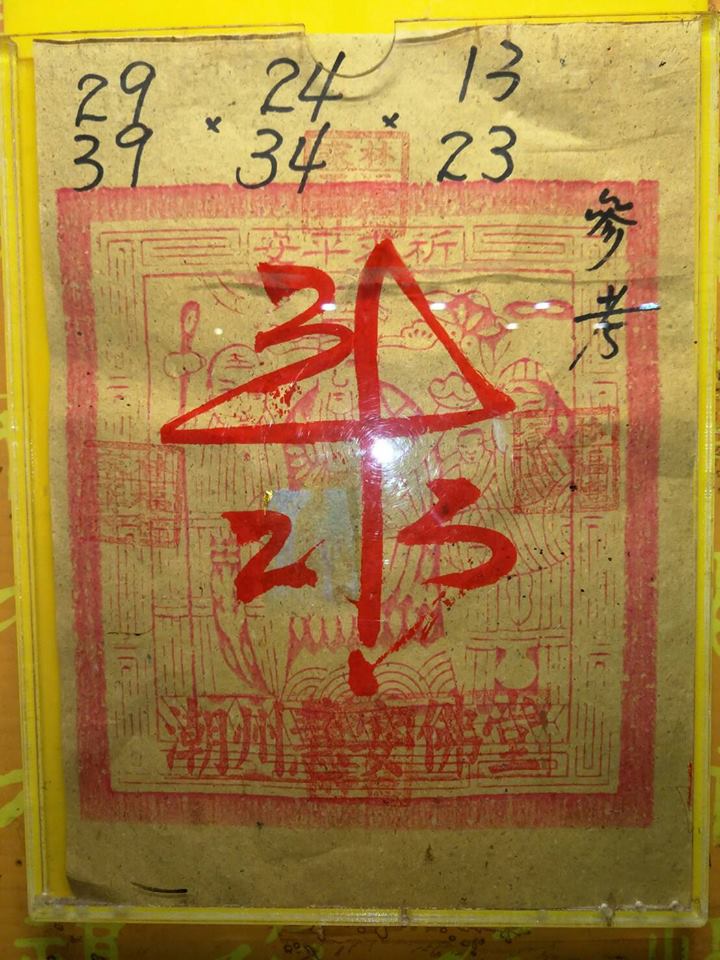 29 24 13
× ×
39 34 23
參考
祈求平安
3
2 3
潮州善安佛堂